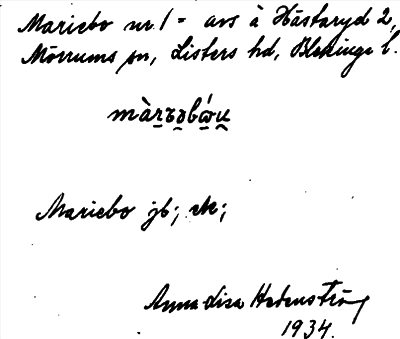 Mariebo nr. 1 = avs å Hästaryd 2,
Mörrums sn, Listers hd, Blekinge l.
Mariebo jb; ek;
Anna Lisa Hedenström
1934.